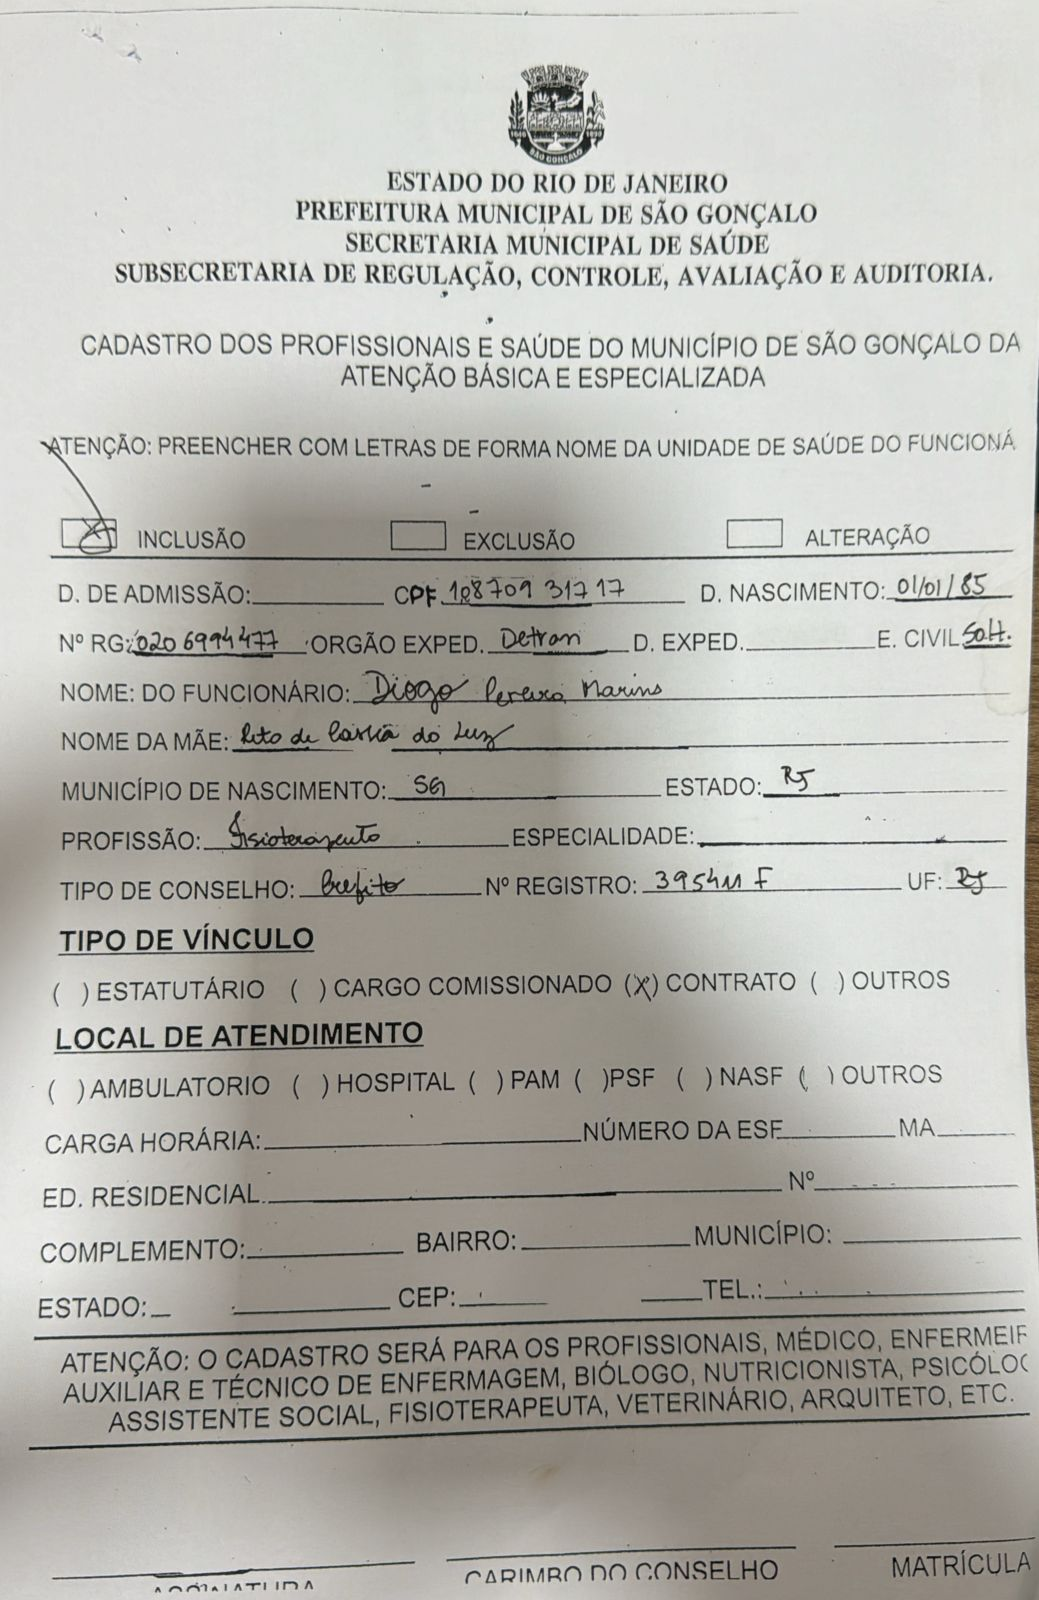 1646 1890
SÃO GONÇALO
ESTADO DO RIO DE JANEIRO
PREFEITURA MUNICIPAL DE SÃO GONÇALO
SECRETARIA MUNICIPAL DE SAÚDE
SUBSECRETARIA DE REGULAÇÃO, CONTROLE, AVALIAÇÃO E AUDITORIA.
CADASTRO DOS PROFISSIONAIS E SAÚDE DO MUNICÍPIO DE SÃO GONÇALO DA
ATENÇÃO BÁSICA E ESPECIALIZADA
ATENÇÃO: PREENCHER COM LETRAS DE FORMA NOME DA UNIDADE DE SAÚDE DO FUNCIONÁ
INCLUSÃO EXCLUSÃO ALTERAÇÃO
D. DE ADMISSÃO: CPF. D. NASCIMENTO: 01/01/85
Nº RG: 020 6994477 ORGÃO EXPED. Detran D. EXPED. E. CIVIL Solt.
NOME: DO FUNCIONÁRIO: Diogo Pereira Marins
NOME DA MÃE: de Cassia da Luz
MUNICÍPIO DE NASCIMENTO: SG ESTADO: RJ
PROFISSÃO: Fisioterapeuta ESPECIALIDADE:
TIPO DE CONSELHO: Crefito Nº REGISTRO: UF: RJ
TIPO DE VÍNCULO
( ) ESTATUTÁRIO ( ) CARGO COMISSIONADO (X) CONTRATO ( ) OUTROS
LOCAL DE ATENDIMENTO
( ) AMBULATORIO ( ) HOSPITAL ( ) PAM ( )PSF ( ) NASF ( ) OUTROS
CARGA HORÁRIA: NÚMERO DA ESF MA
ED. RESIDENCIAL. Nº
COMPLEMENTO: BAIRRO: MUNICÍPIO:
ESTADO: CEP: TEL.:
ATENÇÃO: O CADASTRO SERÁ PARA OS PROFISSIONAIS, MÉDICO, ENFERMEIR
AUXILIAR E TÉCNICO DE ENFERMAGEM, BIÓLOGO, NUTRICIONISTA, PSICÓLOG
ASSISTENTE SOCIAL, FISIOTERAPEUTA, VETERINÁRIO, ARQUITETO, ETC.
ASSINATURA CARIMBO DO CONSELHO MATRÍCULA